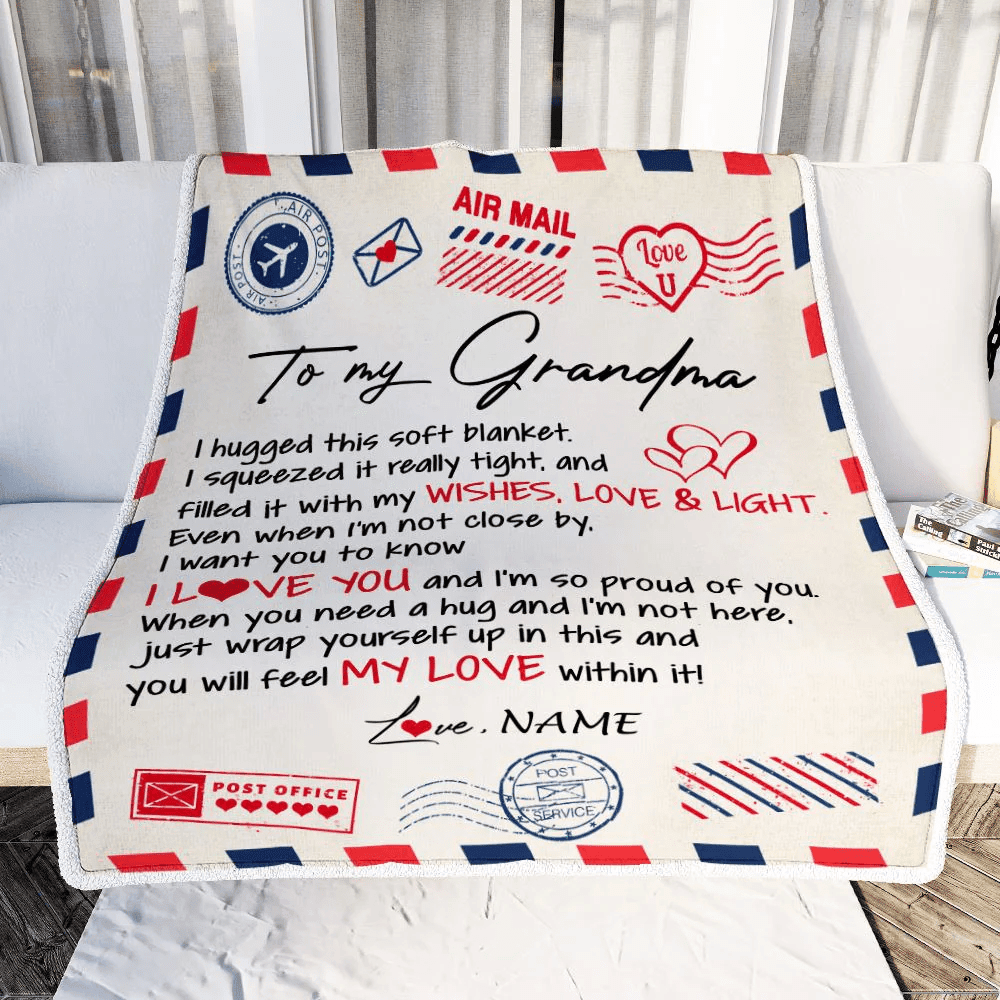 AIR POST
AIR POST
AIR MAIL
Love
U
To my Grandma
I hugged this soft blanket.
I squeezed it really tight, and
filled it with my WISHES, LOVE & LIGHT.
Even when I'm not close by,
I want you to know
I L❤VE YOU and I'm so proud of you.
When you need a hug and I'm not here,
just wrap yourself up in this and
you will feel MY LOVE within it!
L❤ve, NAME
POST OFFICE
POST
SERVICE
The
Calling